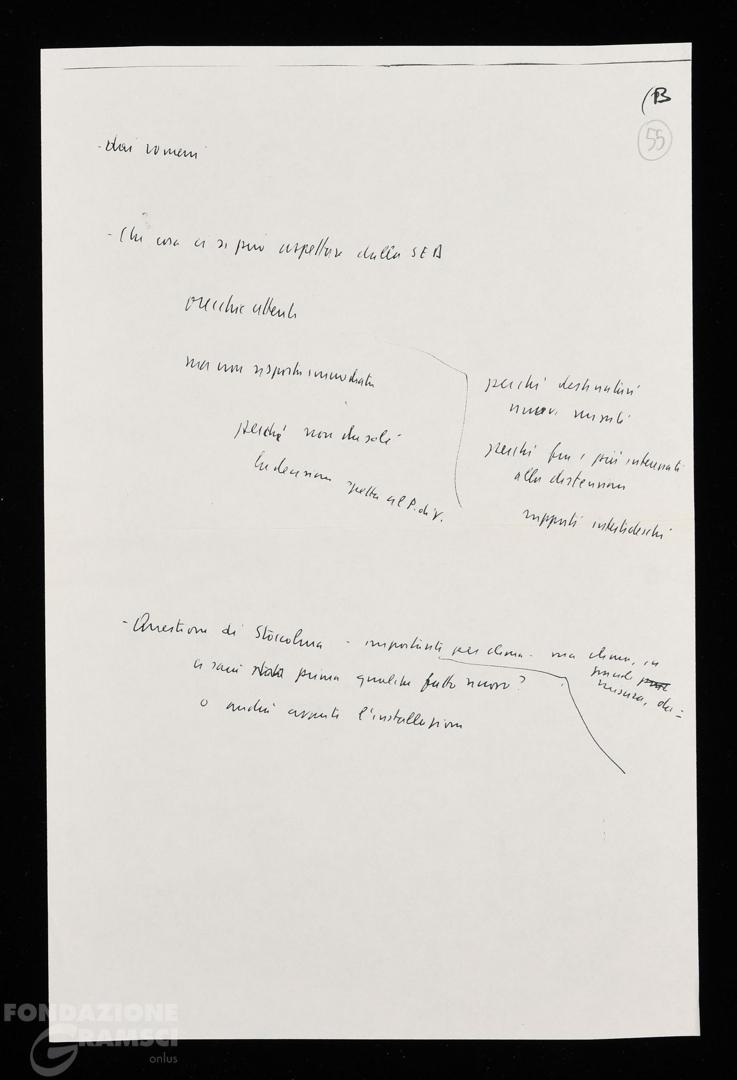 (B
55
- dai romeni
- Che cosa ci si può aspettare dalla SED
orecchie attente
ma non risposte immediate
perché non da sole
la decisione spetta al P. di V.
perché destinatari
nuovi missili
perché fra i più interessati
alla distensione
rapporti intertedeschi
- Questione di Stoccolma - importante per clima - ma clima, in
grande
misura, da:
ci sarà stato prima qualche fatto nuovo?
o andrà avanti l'installazione
FONDAZIONE
GRAMSCI
onlus